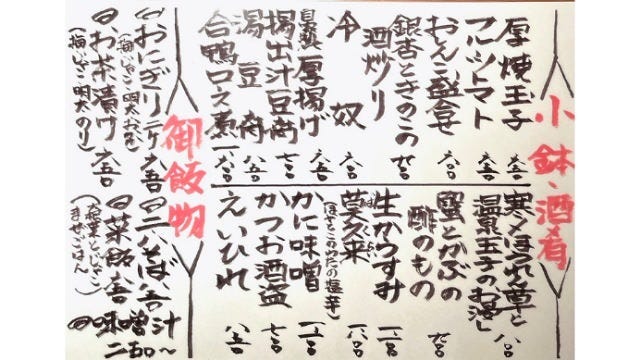 小鉢・酒肴
厚焼玉子
フルーツトマト
おしんこ盛合せ 六〇〇
銀杏ときのこの
酒炒り 九〇〇
冷奴 六〇〇
自家製厚揚げ 六五〇
揚出汁豆腐 七〇〇
湯豆腐 八五〇
合鴨ロース煮
寒〆ほうれん草と
温泉玉子のお浸し 八〇〇
蟹とかぶの
酢のもの 九〇〇
生からすみ 一二〇〇
莫久来 一八〇〇
ばくらい
(ほやとこのわたの塩辛)
かに味噌 一二〇〇
かつお酒盗 七〇〇
えいひれ 八五〇
御飯物
おにぎり二ケ 六五〇
(梅じゃこ 明太
お茶漬け 六五〇
(梅じゃこ 明太 のり)
二八そば
菜飯
(大根葉とじゃこ
まぜごはん)
味噌汁